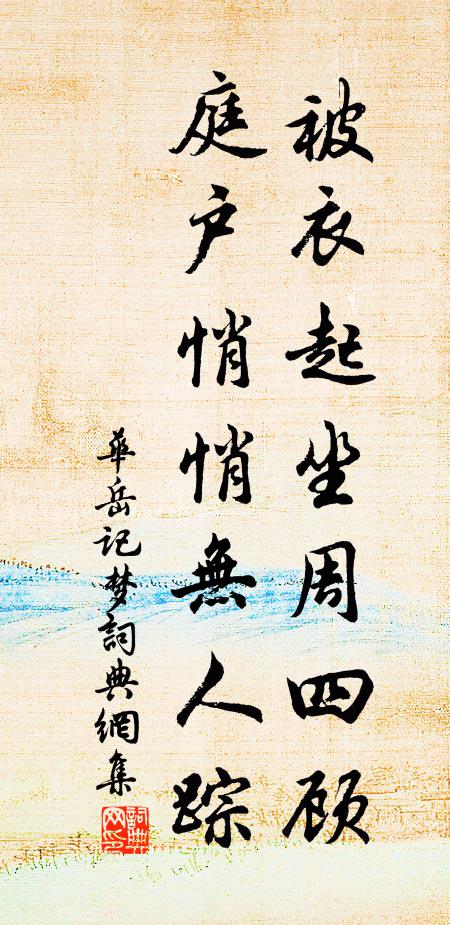 被衣起坐周四顾
庭户悄悄無人踪
華岳记梦詞典網集
詞典网印